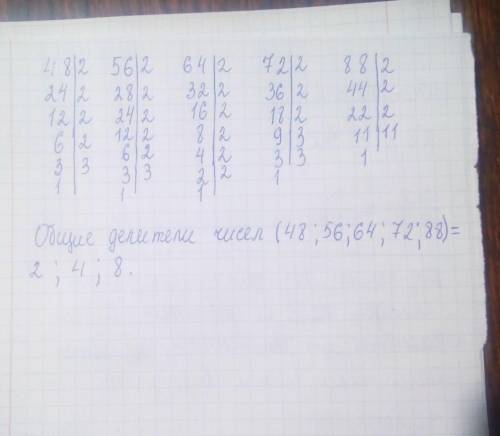 48|2 56|2 64|2 72|2 88|2
24|2 28|2 32|2 36|2 44|2
12|2 24|2 16|2 18|2 22|2
6|2 12|2 8|2 9|3 11|11
3|3 6|2 4|2 3|3 1
1 3|3 2|2 1
1 1
Общие делители чисел (48;56;64;72;88)=
2; 4; 8.